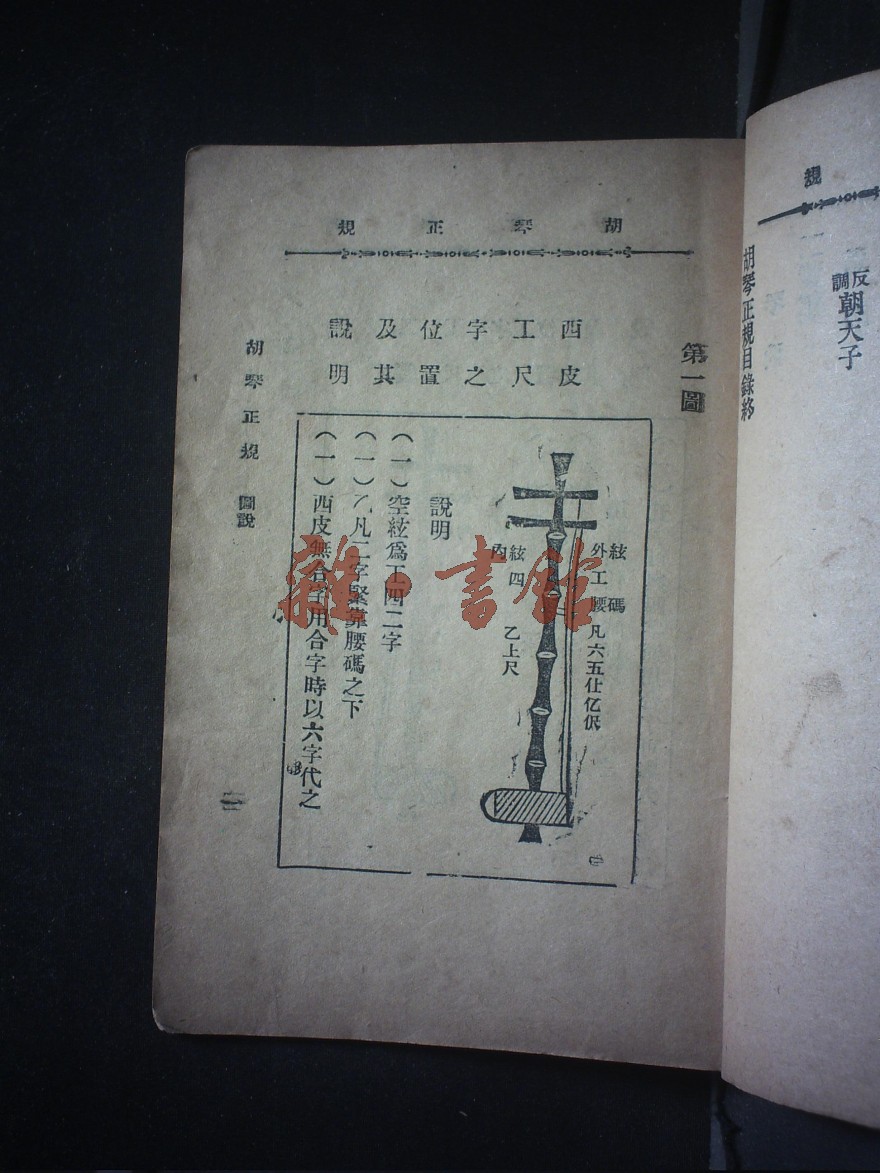 規
胡琴正規目錄終
反調 朝天子
胡琴正規
第一圖
西皮
工尺
字之
位置
及其
說明
外絃
工
腰碼
凡六五仕亿伬
內絃
四
乙上尺
說明
(一)空絃爲工四二字
(一)乙凡二字緊靠腰碼之下
(一)西皮無合字用合字時以六字代之
胡琴正規 圖說
雜·書館